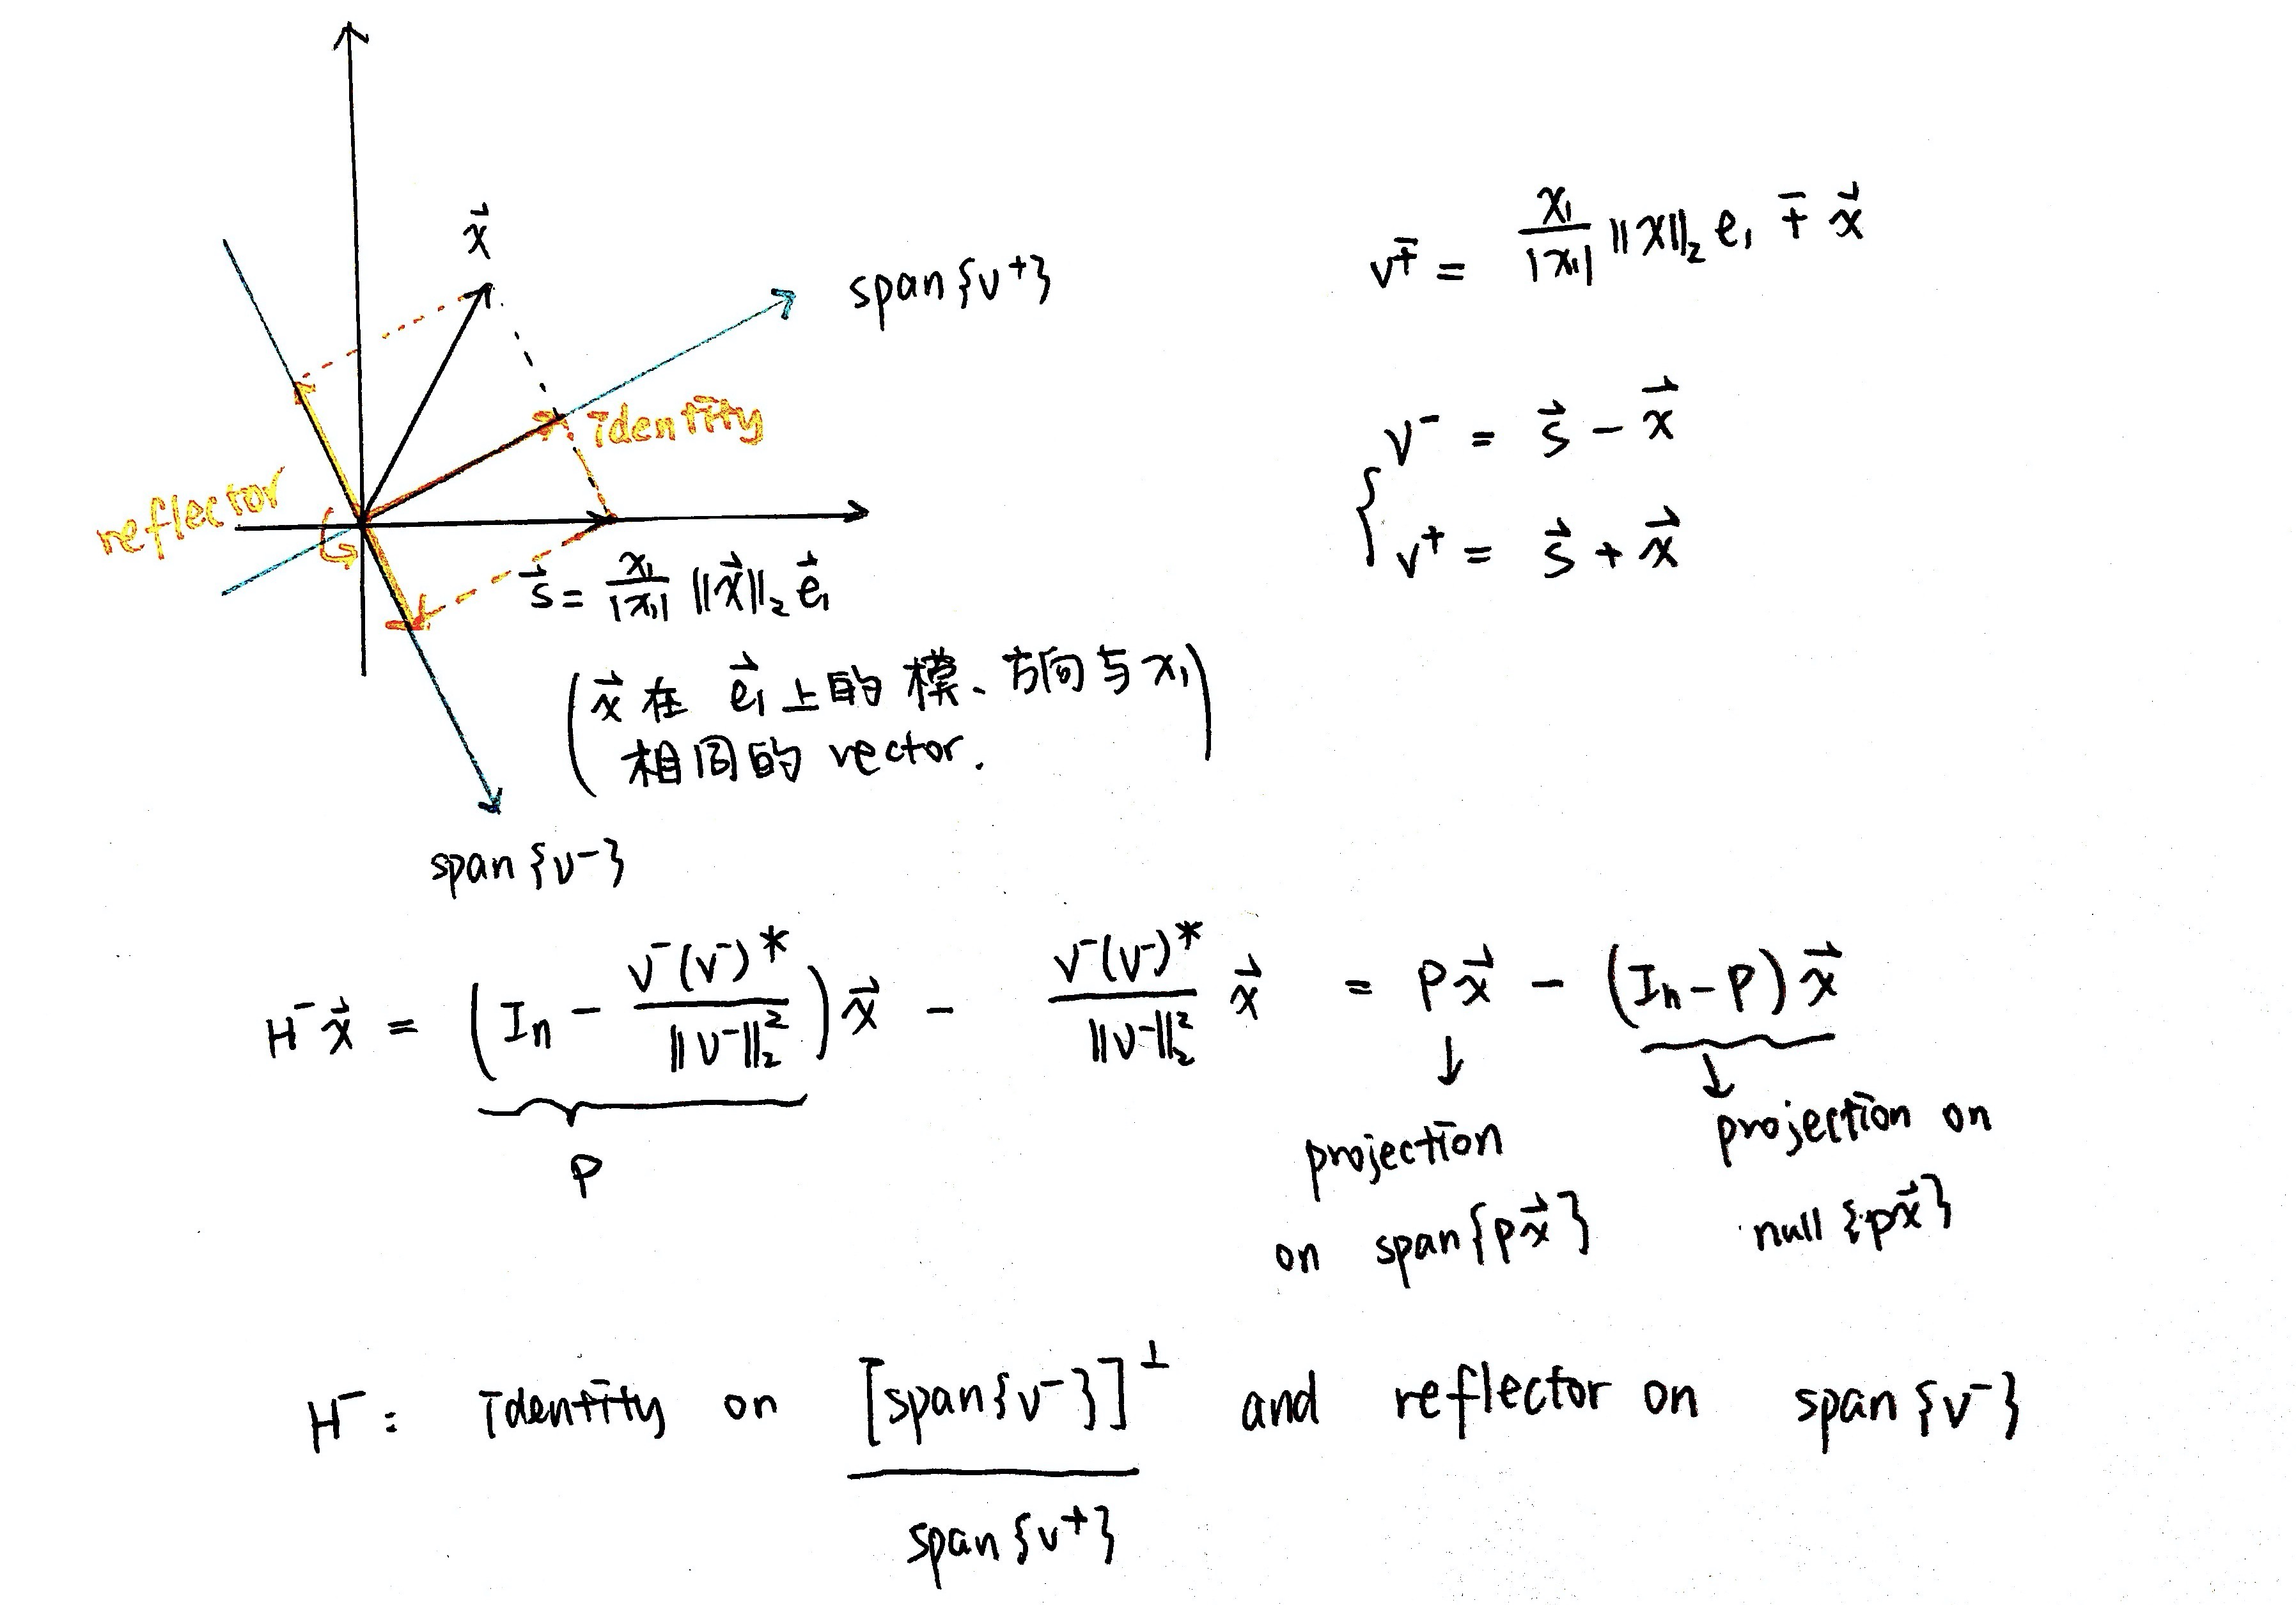 x⃗
span{v⁺}
identity
reflector
s⃗ = x₁/|x₁| ‖x⃗‖₂ e⃗₁
(x⃗ 在 e⃗₁ 上的 模、方向与 x₁
相同的 vector.)
span{v⁻}
v^∓ = x₁/|x₁| ‖x‖₂ e₁ ∓ x⃗
{ v⁻ = s⃗ − x⃗
v⁺ = s⃗ + x⃗
H⁻x⃗ = (Iₙ − v⁻(v⁻)*/‖v⁻‖₂²) x⃗ − v⁻(v⁻)*/‖v⁻‖₂² x⃗ = Px⃗ − (Iₙ−P) x⃗
P
↓
projection
on span{Px⃗}
↓
projection on
null {Px⃗}
H⁻: identity on [span{v⁻}]^⊥ and reflector on span{v⁻}
span{v⁺}